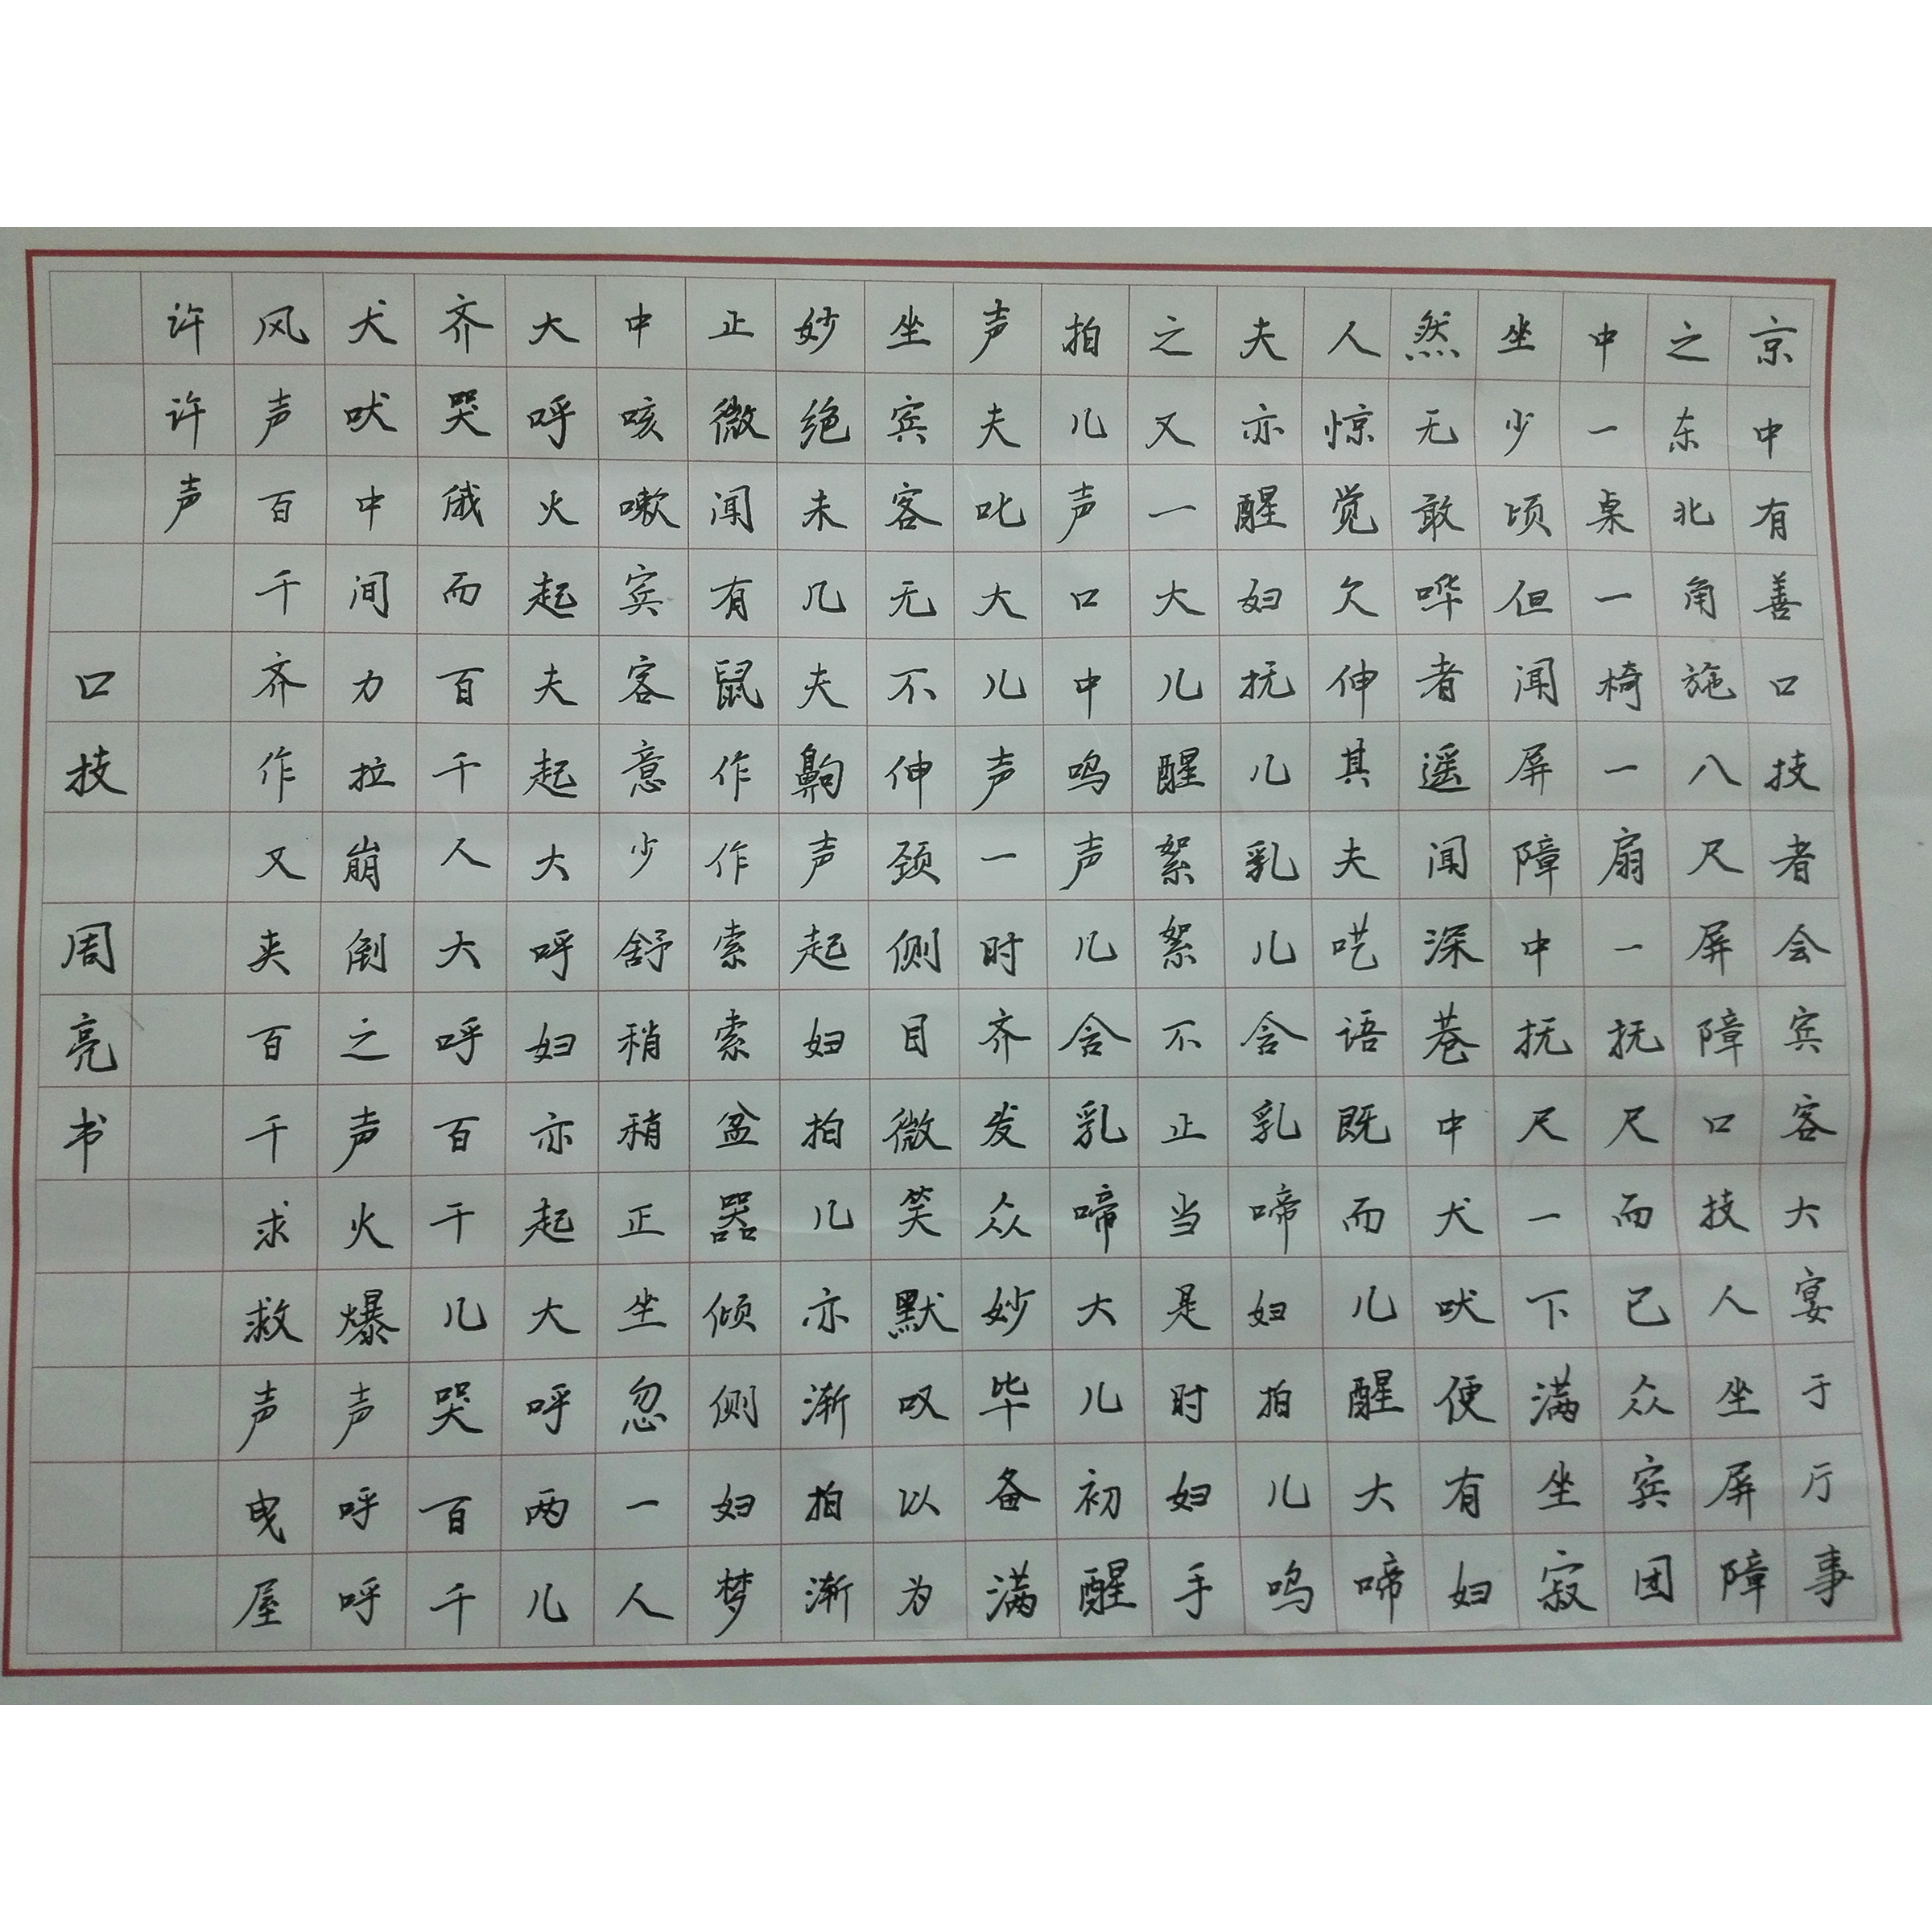 京中有善口技者会宾客大宴于厅事
之东北角施八尺屏障口技人坐屏障
中一桌一椅一扇一抚尺而已众宾团
坐少顷但闻屏障中抚尺一下满坐寂
然无敢哗者遥闻深巷中犬吠便有妇
人惊觉欠伸其夫呓语既而儿醒大啼
夫亦醒妇抚儿乳儿含乳啼妇拍儿呜
之又一大儿醒絮絮不止当是时妇手
拍儿声口中呜声儿含乳啼大儿初醒
声夫叱大儿声一时齐发众妙毕备满
坐宾客无不伸颈侧目微笑默叹以为
妙绝未几夫齁声起妇拍儿亦渐拍渐
正微闻有鼠作作索索盆器倾侧妇梦
中咳嗽宾客意少舒稍稍正坐忽一人
大呼火起夫起大呼妇亦起大呼两儿
齐哭俄而百千人大呼百千儿哭百千
犬吠中间力拉崩倒之声火爆声呼呼
风声百千齐作又夹百千求救声曳屋
许许声
口技 周亮书